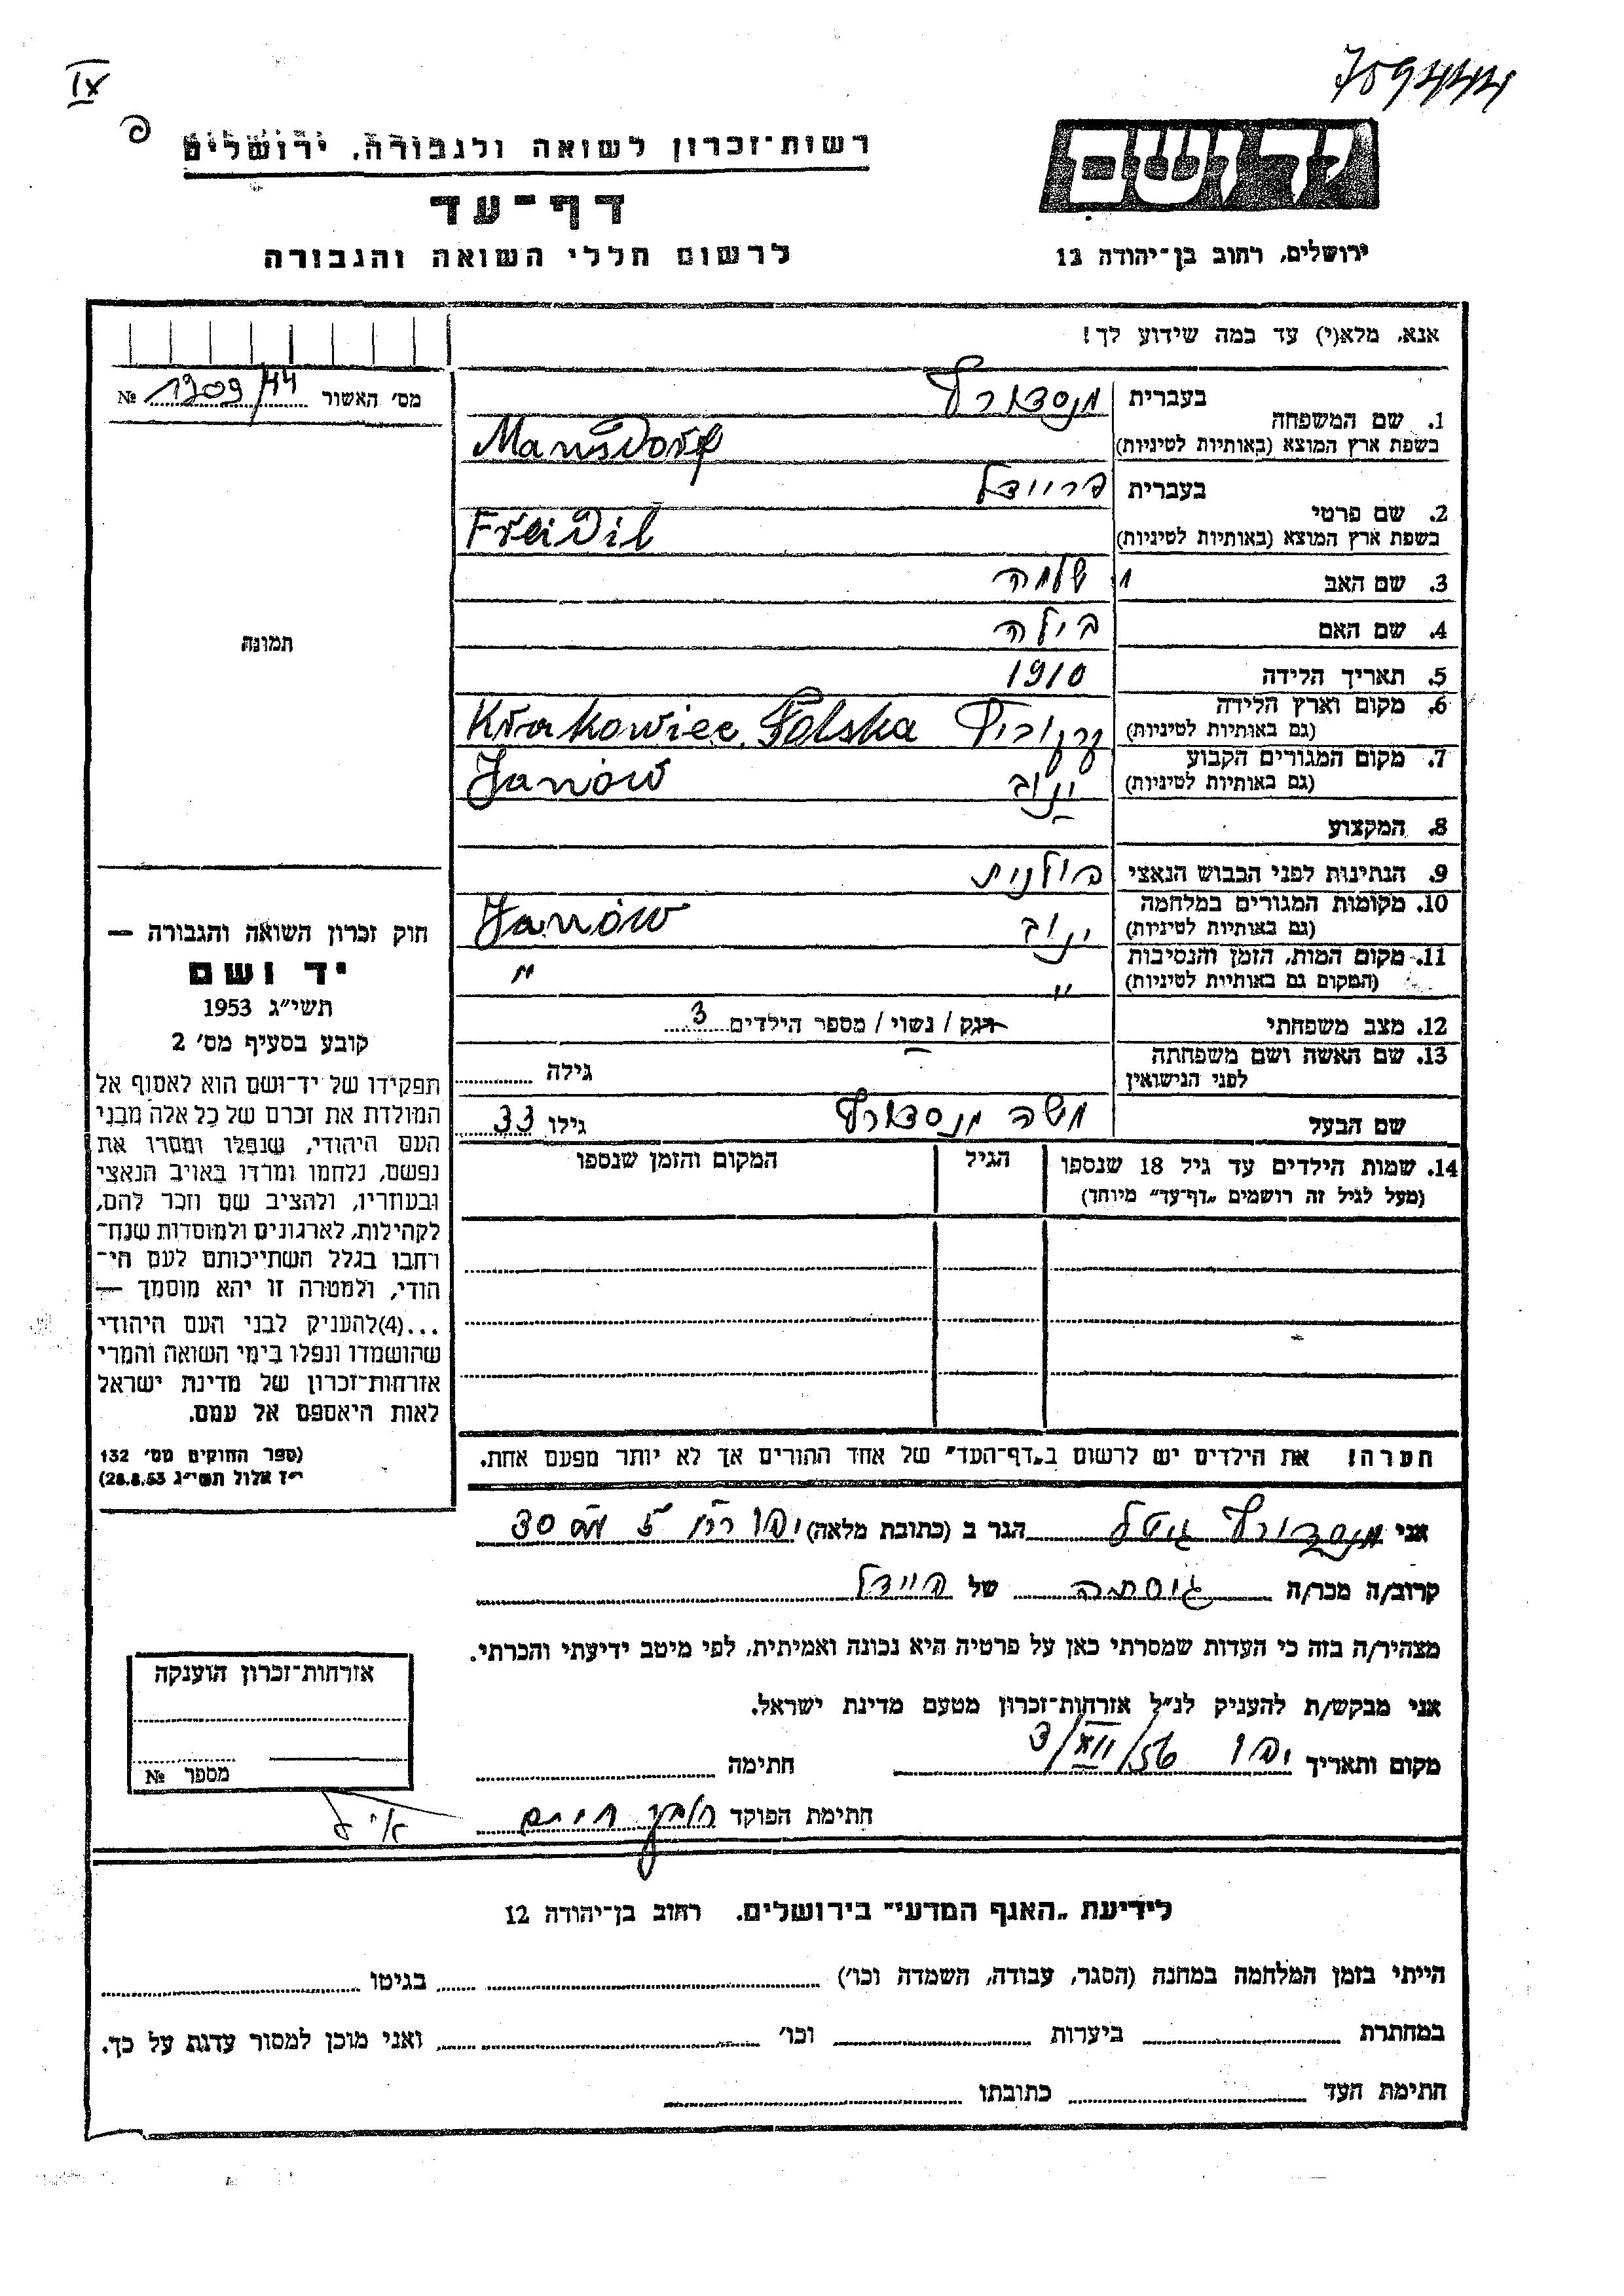 IX
רשות־זכרון לשואה ולגבורה, ירושלים
דף־עד
לרשום חללי השואה והגבורה
יד ושם
ירושלים, רחוב בן־יהודה 12
אנא, מלא(י) עד במה שידוע לך!
מס׳ האשור 1909/44 №
תמונה
חוק זכרון השואה והגבורה —
יד ושם
תשי״ג 1953
קובע בסעיף מס׳ 2
תפקידו של יד־ושם הוא לאסוף אל
המולדת את זכרם של כל אלה מבני
העם היהודי, שנפלו ומסרו את
נפשם, נלחמו ומרדו באויב הנאצי
ובעוזריו, ולהציב שם וזכר להם,
לקהילות, לארגונים ולמוסדות שנח־
רחבו בגלל השתייכותם לעם הי־
הודי, ולמטרה זו יהא מוסמך —
...(4)להעניק לבני העם היהודי
שהושמדו ונפלו בימי השואה והמרי
אזרחות־זכרון של מדינת ישראל
לאות היאספם אל עמם.
(ספר החוקים מס׳ 132
י״ז אלול תשי״ג 28.8.53)
1. שם המשפחה בעברית מנסדורף
בשפת ארץ המוצא (באותיות לטיניות) Mansdorf
2. שם פרטי בעברית פריידל
בשפת ארץ המוצא (באותיות לטיניות) Freidil
3. שם האב שלמה
4. שם האם ביילה
5. תאריך הלידה 1910
6. מקום וארץ הלידה
(גם באותיות לטיניות) Krakowiec, Polska
7. מקום המגורים הקבוע
(גם באותיות לטיניות) ינוב Janów
8. המקצוע
9. הנתינות לפני הכבוש הנאצי פולנית
10. מקומות המגורים במלחמה
(גם באותיות לטיניות) ינוב Janów
11. מקום המות, הזמן והנסיבות
(המקום גם באותיות לטיניות) " "
12. מצב משפחתי רוק / נשוי / מספר הילדים 3
13. שם האשה ושם משפחתה
לפני הנישואין גילה
שם הבעל משה מנסדורף גילו 33
14. שמות הילדים עד גיל 18 שנספו הגיל המקום והזמן שנספו
(מעל לגיל זה רושמים „דף־עד״ מיוחד)
הערה! את הילדים יש לרשום ב„דף־העד״ של אחד ההורים אך לא יותר מפעם אחת.
אני מנסדורף גיטל הגר ב (כתובת מלאה) יפו 30
קרוב/ה מכר/ה גיסתה של
מצהיר/ה בזה כי העדות שמסרתי כאן על פרטיה היא נכונה ואמיתית, לפי מיטב ידיעתי והכרתי.
אני מבקש/ת להעניק לנ״ל אזרחות־זכרון מטעם מדינת ישראל.
מקום ותאריך יפו 3/XII/56 חתימה
חתימת הפוקד
אזרחות־זכרון הוענקה
מספר №
לידיעת „האגף המדעי״ בירושלים, רחוב בן־יהודה 12
הייתי בזמן המלחמה במחנה (הסגר, עבודה, השמדה וכו׳) בגיטו
במחתרת ביערות וכו׳ ואני מוכן למסור עדות על כך.
חתימת העד כתובתו